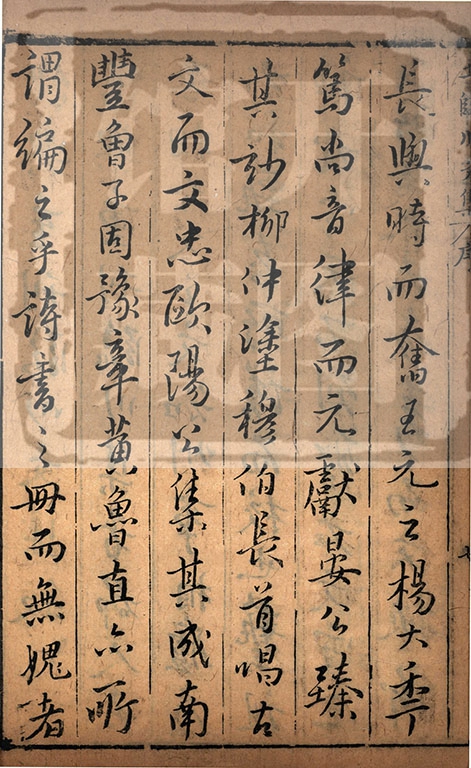 長與時而奮王元之楊大年
篤尚音律而元獻晏公臻
其妙柳仲塗穆伯長首唱古
文而文忠歐陽公集其成南
豐曾子固豫章黃魯直亦所
謂編之乎詩書之冊而無媿者